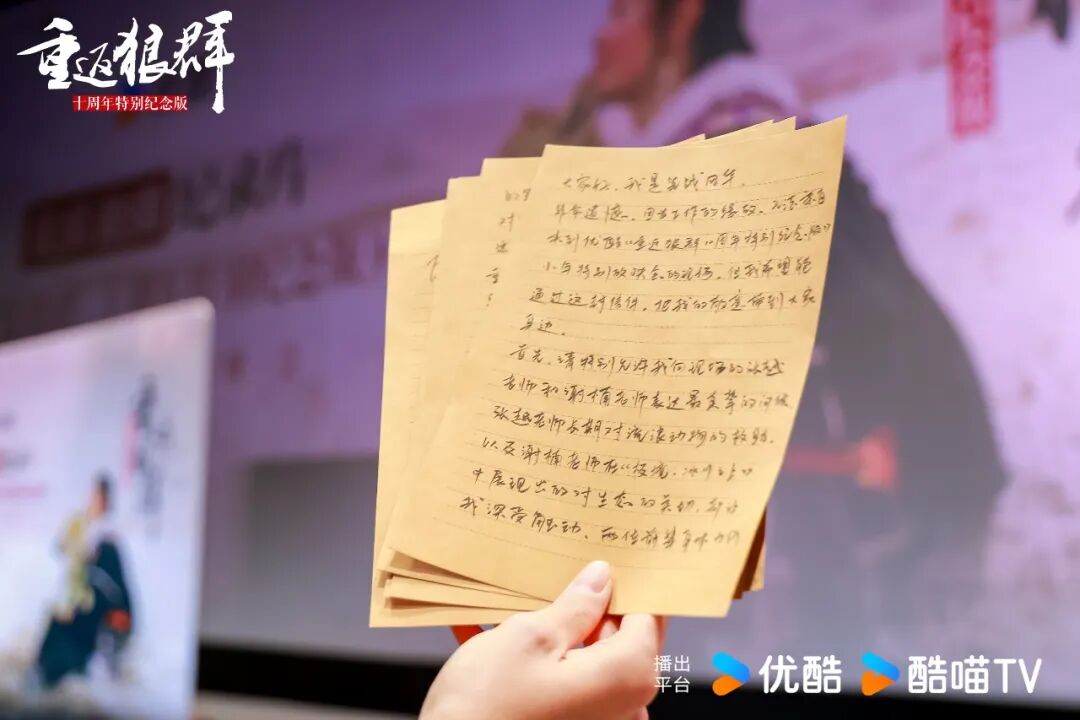 重返狼群
十周年特别纪念版
大家好,我是
非常遗憾,因为工作的缘故,无法亲自
来到优酷《重返狼群十周年特别纪念版》
小年特别放映会的现场,但我希望能
通过这封信件,把我的敬意带到大家
身边。
首先,请特别允许我向现场的张越
老师和谢楠老师表达最真挚的问候
张越老师长期对流浪动物的救助,
以及谢楠老师在《极境·冰川之下》
中展现出的对生态的关切,都让
我深受触动,两位
对
重
播出
平台
优酷
酷喵TV